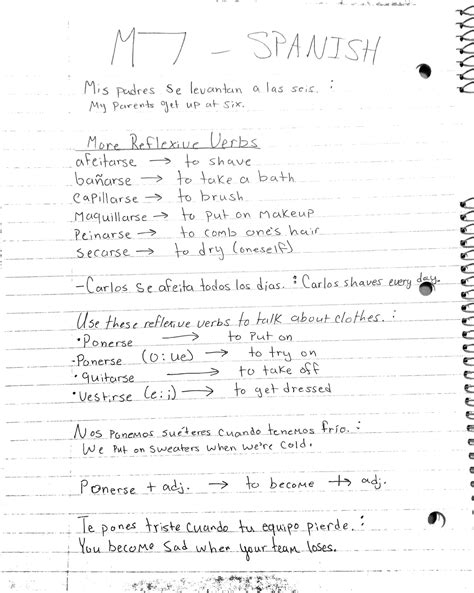 M7 - SPANISH
Mis padres se levantan a las seis. :
My Parents get up at six.
More Reflexive Verbs
afeitarse → to shave
bañarse → to take a bath
Capillarse → to brush
Maquillarse → to put on makeup
Peinarse → to comb one's hair
Secarse → to dry (oneself)
-Carlos se afeita todos los dias. : Carlos shaves every day.
Use these reflexive verbs to talk about clothes. :
• Ponerse → to put on
• Ponerse (o:ue) → to try on
• quitarse → to take off
• Vestirse (e:i) → to get dressed
Nos ponemos suéteres cuando tenemos frío. :
We put on sweaters when we're cold.
Ponerse + adj. → to become + adj.
Te pones triste cuando tu equipo pierde. :
You become sad when your team loses.